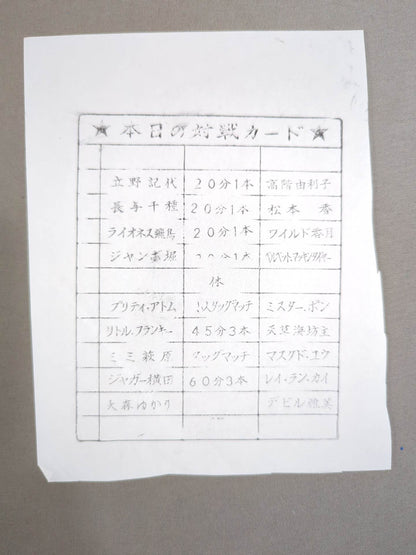 ★本日の対戦カード★
立野記代 20分1本 高階由利子
長与千種 20分1本 松本 香
ライオネス飛鳥 20分1本 ワイルド香月
ジャンボ堀
休
プリティ・アトム タッグマッチ ミスター・ポン
リトル・フランキー 45分3本 天草海坊主
ミミ萩原 タッグマッチ マスクド・ユウ
ジャガー横田 60分3本 レイ・ラン・カイ
大森ゆかり デビル雅美